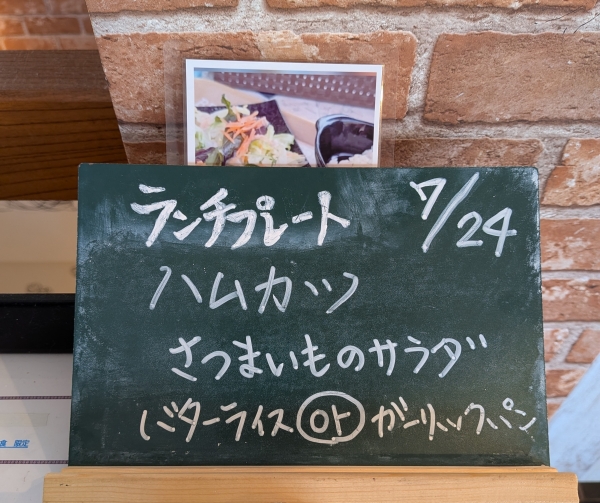 ランチプレート 7/24
ハムカツ
さつまいものサラダ
バターライス or ガーリックパン
食 限定